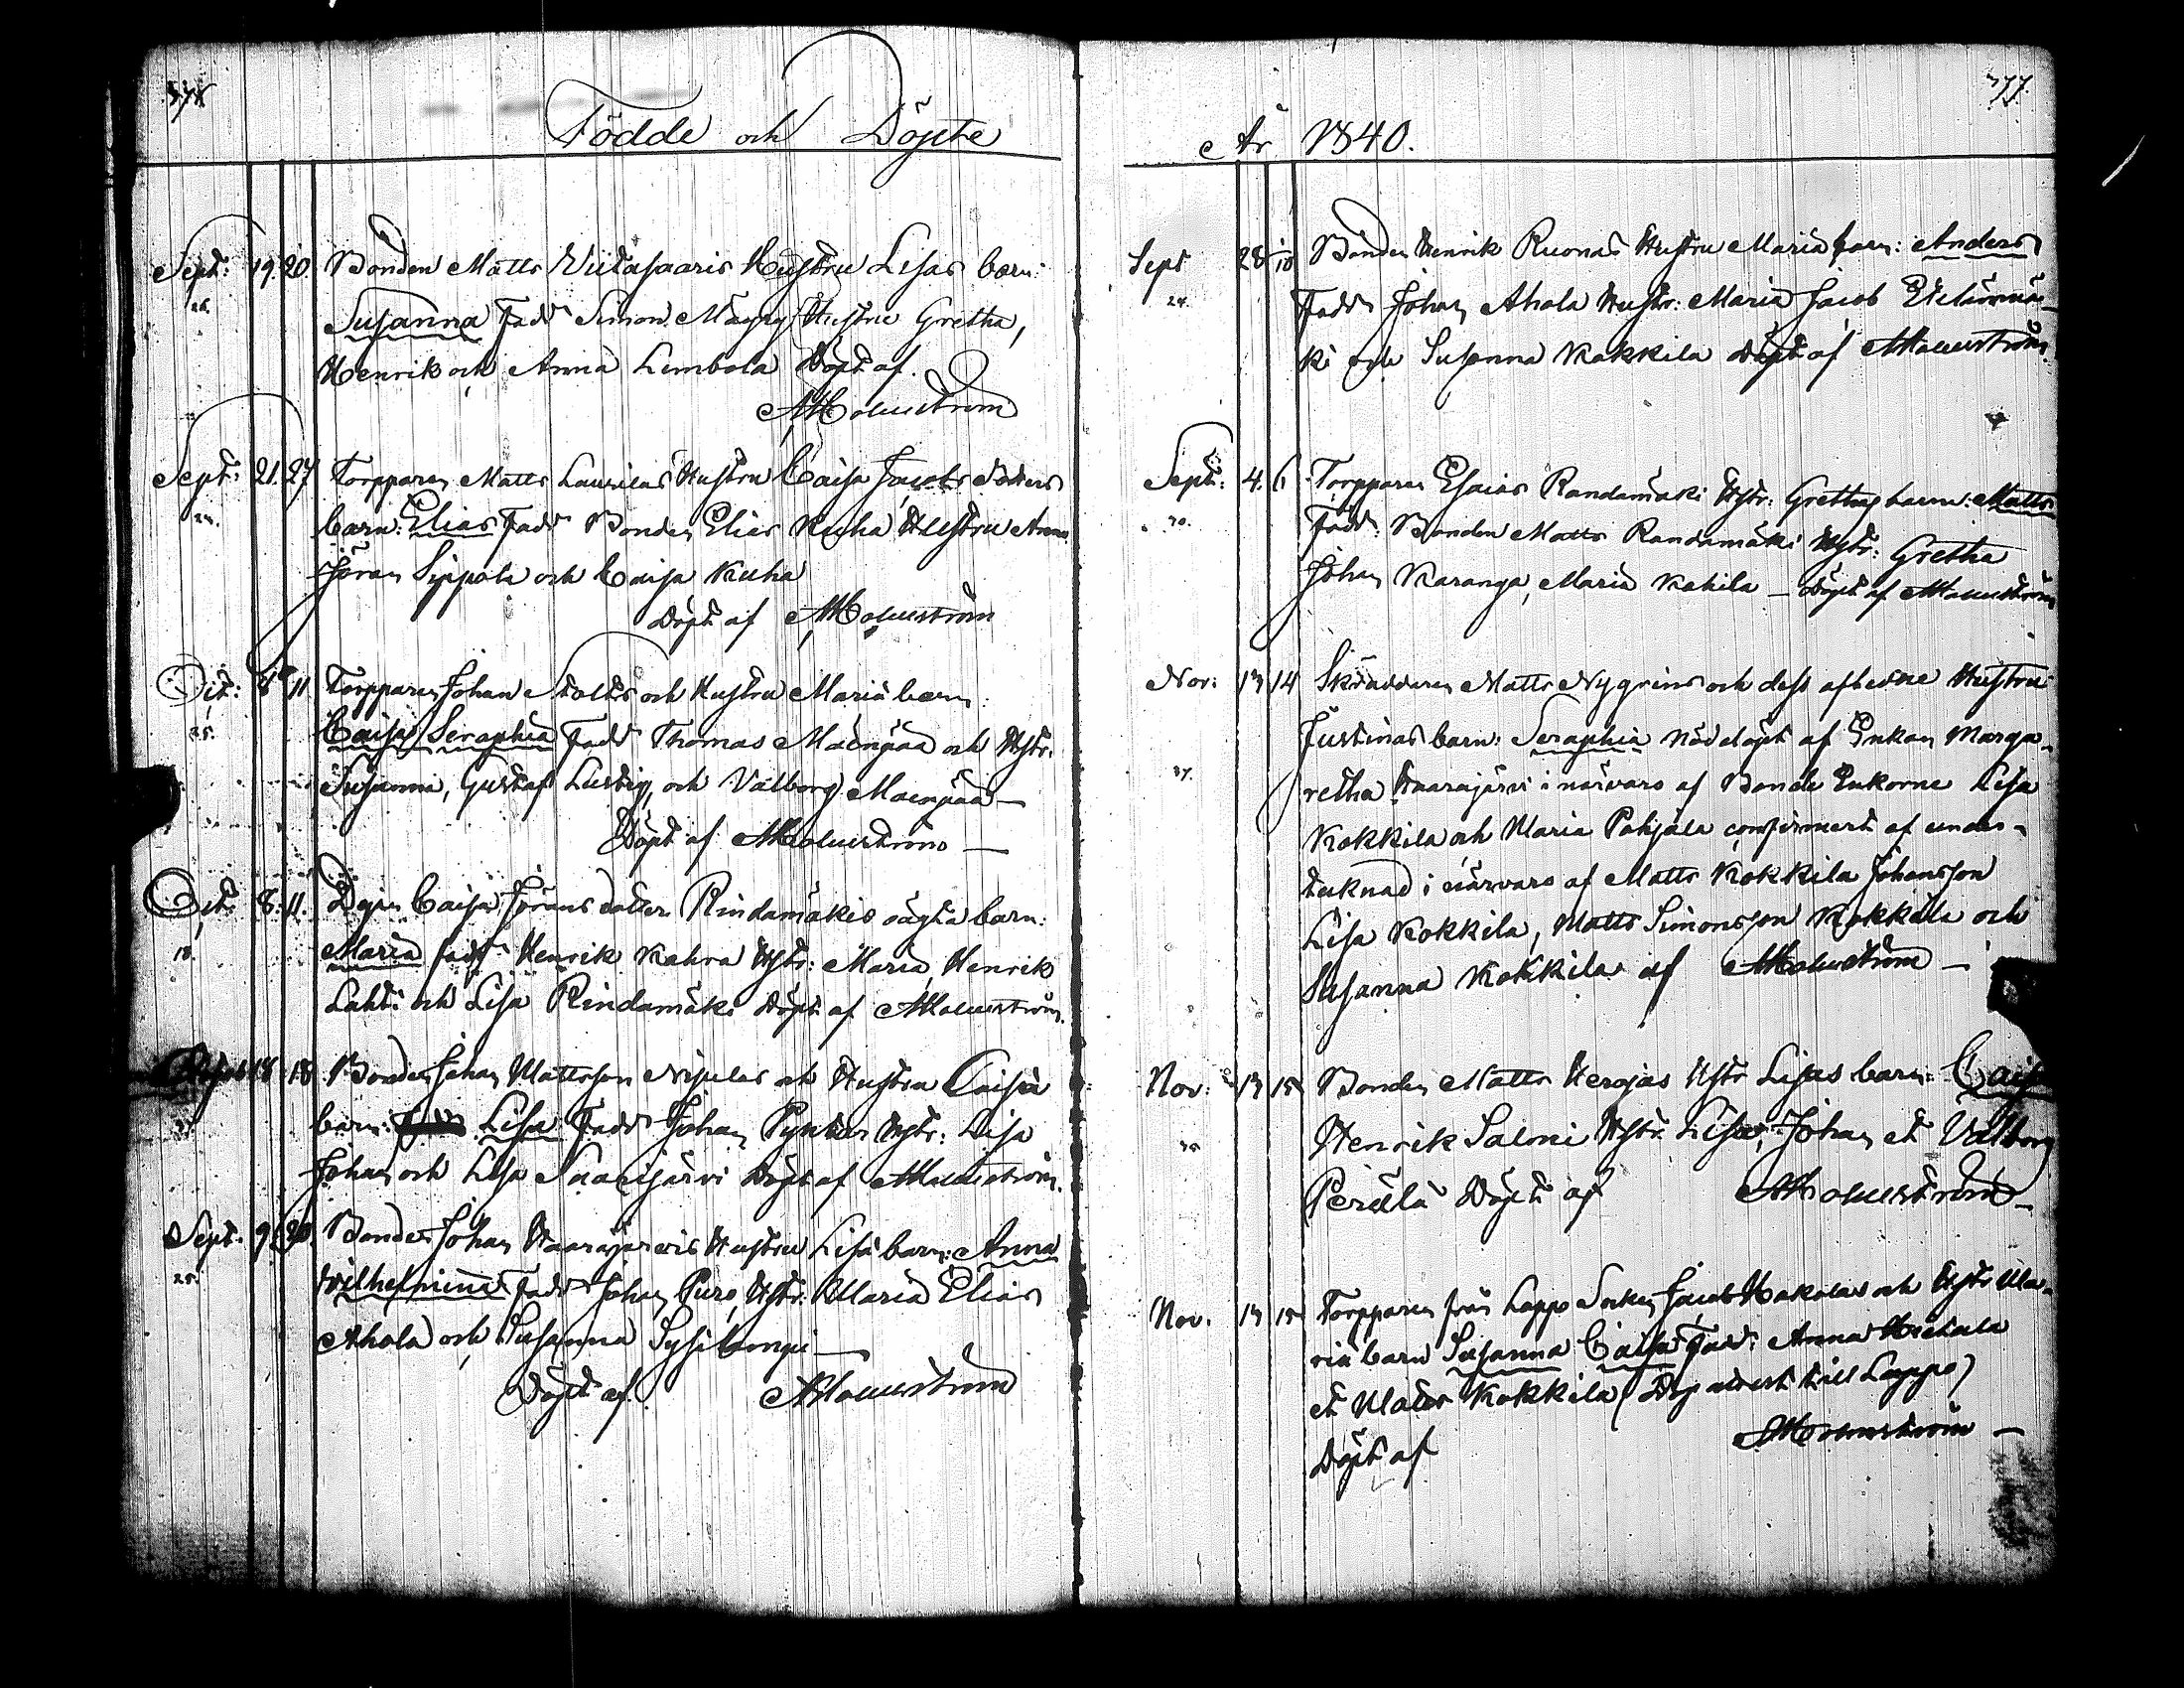 Födde och Döpte
Sept: 19. 20. Bonden Matts Viitasaaris Hustru Lisas barn:
26. Susanna Fadd Simon Mägg Hustru Gretha,
Henrik och Anna Limbola Döpt af.
AHolmström
Sept: 21. 27 Torpparen Matts Laurilas Hustru Caisa Jacobs dotters
24. barn: Elias Fadd Bonden Elias Kuha Hustru Anna
Jöran Sippola och Caisa Kuha
Döpt af AHolmström
Oct: 8 11 Torpparen Johan Stolts och Hustru Maria barn
25. Caisa Seraphia Fadd Thomas Mäenpää och Hstr.
Susanna, Gustaf Lustig, och Valborg Maenpää
Döpt af AHolmström
Oct. 8. 11. Caisa Jörans dotter Rindamäkis oägta barn:
18. Maria fadd Henrik Kahra Hstr: Maria, Henrik
Lahti och Lisa Rindamäki Döpt af AHolmström.
18 18 Bonden Johan Mattsson Nisulas och Hustru Caisa
barn: Lisa Fadd Johan Hstr: Lisa
Johan och Lisa Saarijärvi Döpt af AHolmström.
Sept. 9 20. Bonden Johan Haarajärvis Hustru Lisa barn: Anna
25. Wilhelmina Fadd Johan Puro, Hstr. Maria Elias
Ahola och Susanna Sysilampi
Döpt af. AHolmström
377.
År 1840.
Sept 28 10 Bonden Henrik Ruonas Hustru Maria barn: Anders
24. Fadd Johan Ahola Hustr: Maria Jacob
ki och Susanna Kokkila Döpt af AHolmström.
Sept: 4. 6 Torpparen Esaias Randamäki Hstr: Grethas barn: Matts
30. Fadd: Bonden Matts Randamäki Hstr: Gretha
Johan Karanga, Maria Kokila Döpt af AHolmström
Nov: 13 14 Skräddaren Matts Nygrins och dess aflidne Hustru
Justinas barn: Seraphia nöddöpt af Enkan Marga-
37. retha Haarajärvi i närvaro af Bonde Enkorne Lisa
Kokkila och Maria Pohjala confirmert af under-
teknad i närvaro af Matts Kokkila Johansson
Lisa Kokkila, Matts Simonsson Kokkila och
Susanna Kokkila af AHolmström
Nov: 13 15 Bonden Matts Herojas Hstr Lisas barn: Caisa
Henrik Salmi Hstr. Lisa, Johan et Valborg
Perälä Döpt af AHolmström
Nov. 13 15 Torpparen från Lappo Socken Jacob Hakolas och Hstr Ma-
ria barn Susanna Caisa Fadd: Anna
et Matts Kokkila till Lappo)
Döpt af AHolmström